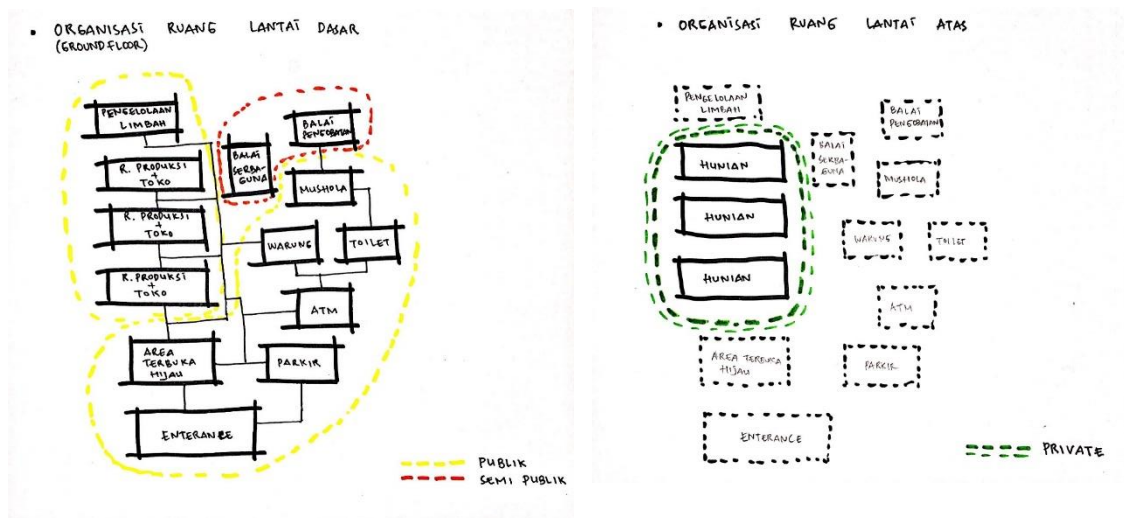 • ORGANISASI RUANG LANTAI DASAR
(GROUND FLOOR)
PENGELOLAAN
LIMBAH
BALAI
PENGOBATAN
BALAI
SERBA-
GUNA
R. PRODUKSI
+
TOKO
MUSHOLA
R. PRODUKSI
+
TOKO
WARUNG
TOILET
R. PRODUKSI
+
TOKO
ATM
AREA
TERBUKA
HIJAU
PARKIR
ENTERANCE
PUBLIK
SEMI PUBLIK
• ORGANISASI RUANG LANTAI ATAS
PENGELOLAAN
LIMBAH
BALAI
PENGOBATAN
BALAI
SERBA-
GUNA
HUNIAN
MUSHOLA
HUNIAN
WARUNG
TOILET
HUNIAN
ATM
AREA TERBUKA
HIJAU
PARKIR
ENTERANCE
PRIVATE